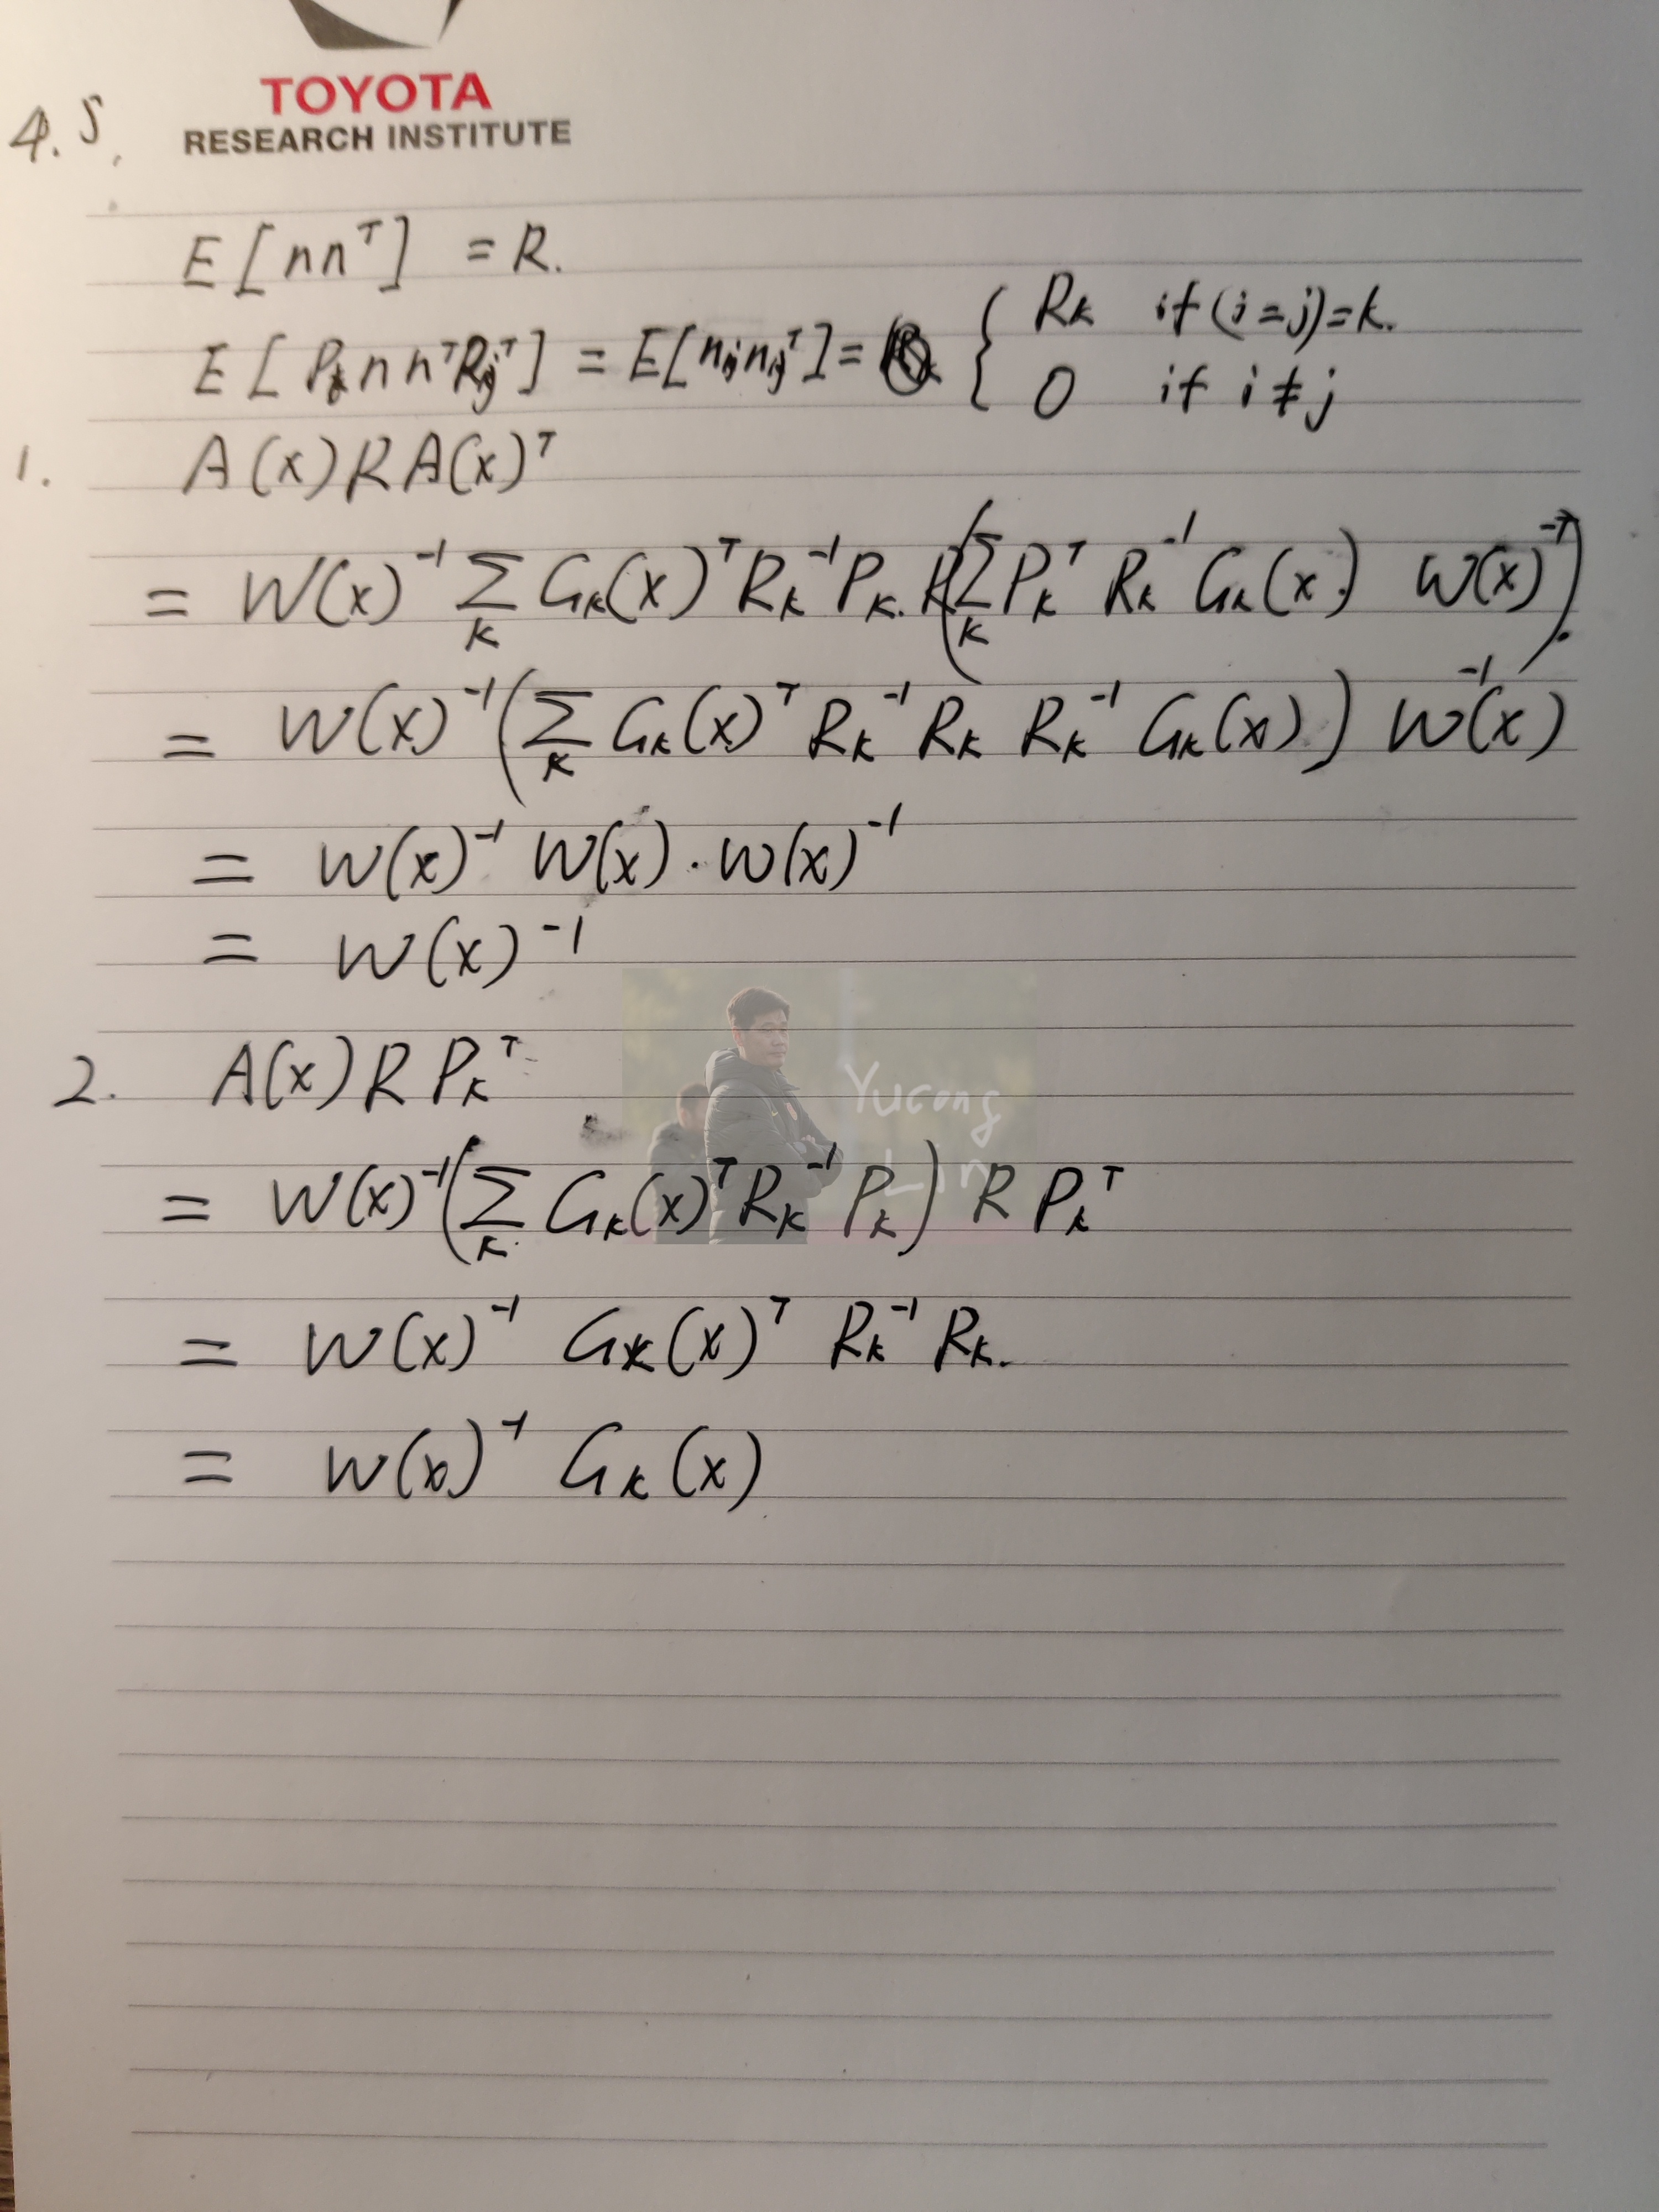 TOYOTA
RESEARCH INSTITUTE
4.5.
E[nnᵀ] = R.
E[PᵢnnᵀPⱼᵀ] = E[nᵢnⱼᵀ] = { Rₖ if (i=j)=k.
0 if i≠j
1. A(x)RA(x)ᵀ
= W(x)⁻¹ Σₖ Gₖ(x)ᵀRₖ⁻¹Pₖ. R(Σₖ Pₖᵀ Rₖ⁻¹ Gₖ(x) W(x)⁻ᵀ).
= W(x)⁻¹(Σₖ Gₖ(x)ᵀ Rₖ⁻¹ Rₖ Rₖ⁻¹ Gₖ(x)) W⁻¹(x)
= W(x)⁻¹ W(x) · W(x)⁻¹
= W(x)⁻¹
2. A(x)R Pₖᵀ
Yucong
Lin
= W(x)⁻¹(Σₖ Gₖ(x)ᵀRₖ⁻¹ Pₖ) R Pₖᵀ
= W(x)⁻¹ Gₖ(x)ᵀ Rₖ⁻¹ Rₖ.
= W(x)⁻¹ Gₖ(x)